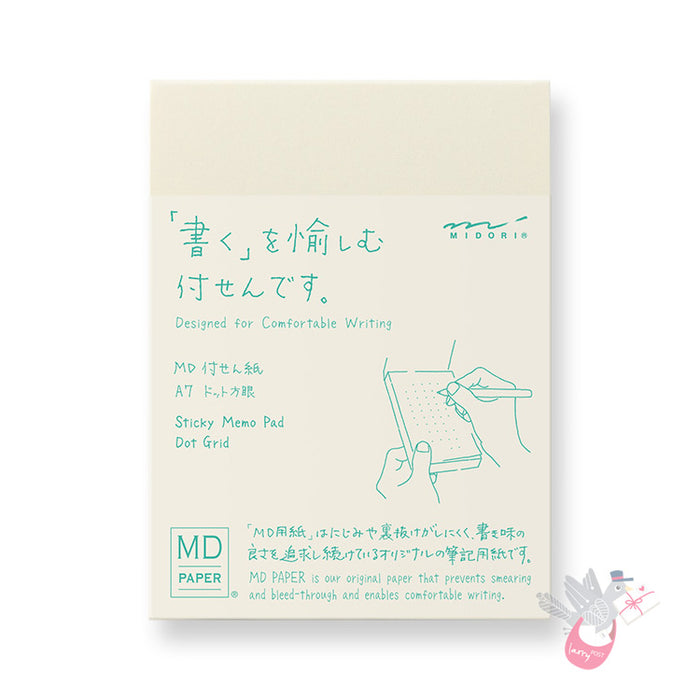 「書く」を愉しむ
付せんです。
Designed for Comfortable Writing
MIDORI®
MD 付せん紙
A7 ドット方眼
Sticky Memo Pad
Dot Grid
MD
PAPER
®
「MD用紙」はにじみや裏抜けがしにくく、書き味の
良さを追求し続けているオリジナルの筆記用紙です。
MD PAPER is our original paper that prevents smearing
and bleed-through and enables comfortable writing.
larry
POST